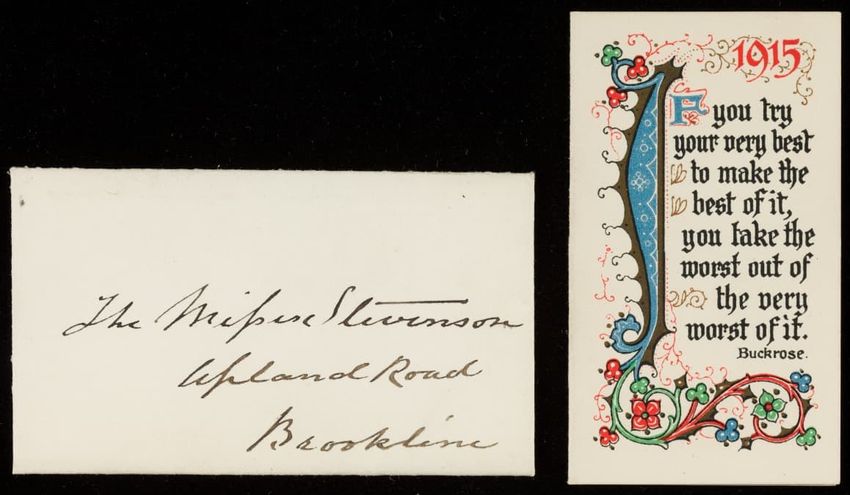 The Misses Stevenson
Upland Road
Brookline
1915
IF you try
your very best
to make the
best of it,
you take the
worst out of
the very
worst of it.
Buckrose.